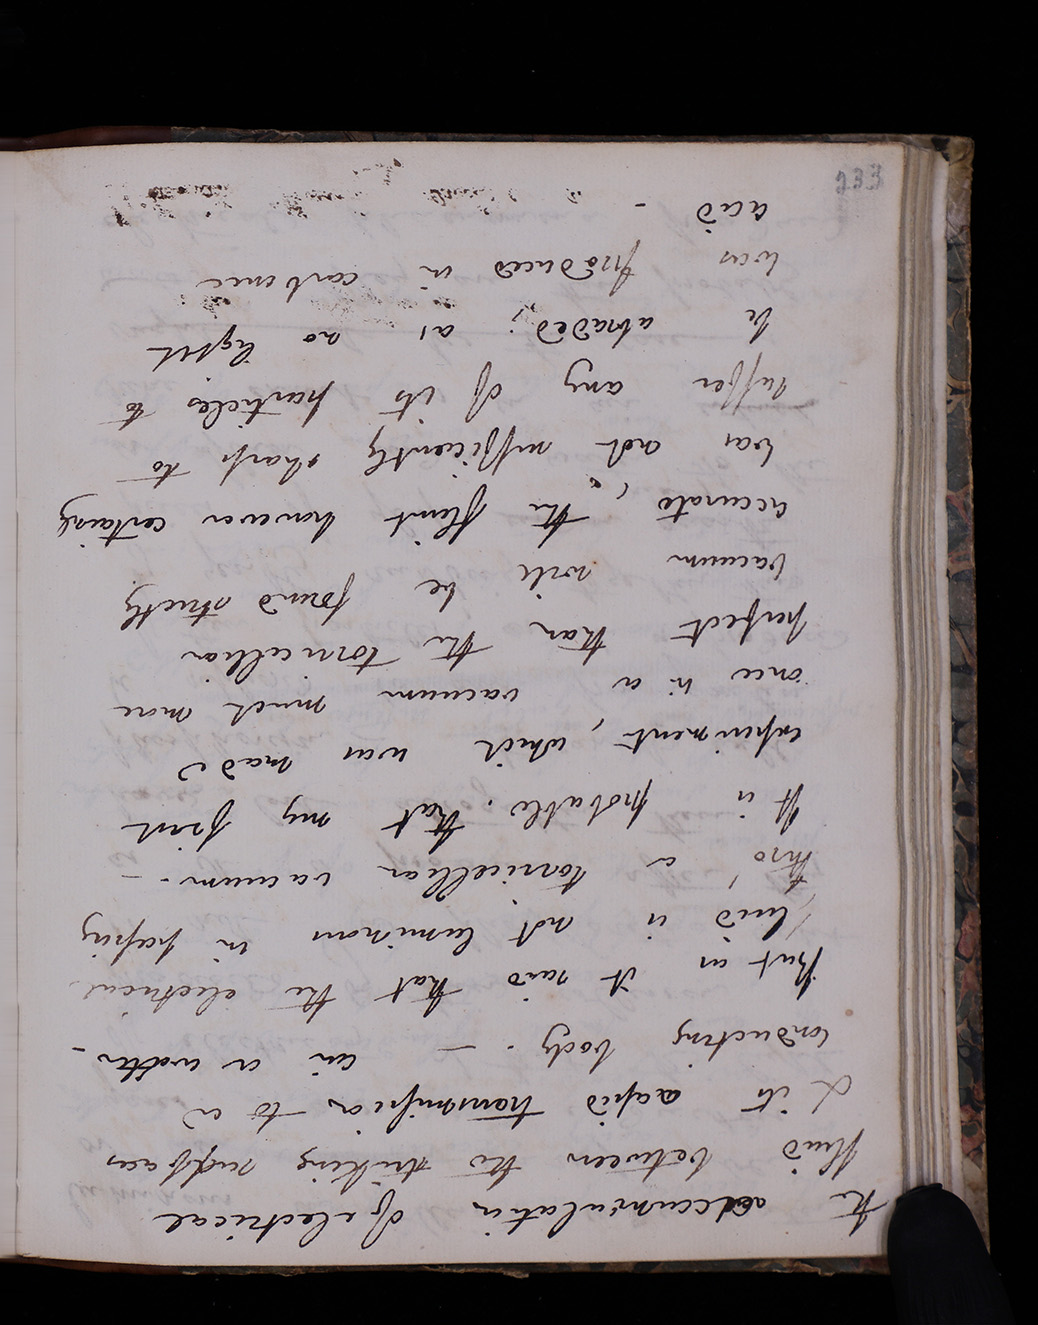 the accumulation of electrical
fluid between the striking surfaces
& its rapid transmission to a
conducting body. — in a watter -
But as it said that the electrical
fluid is not luminous in passing
thro' a torricellian vacuum. -
It is probable. that my first
experiment, which was made
once in a vacuum much more
perfect than the torricellian
vacuum will be found strictly
accurate, the flint however certainly
was not sufficiently sharp to
suffer any of its particles to
be abraded; as no light
was produced in carbonic
acid -
233